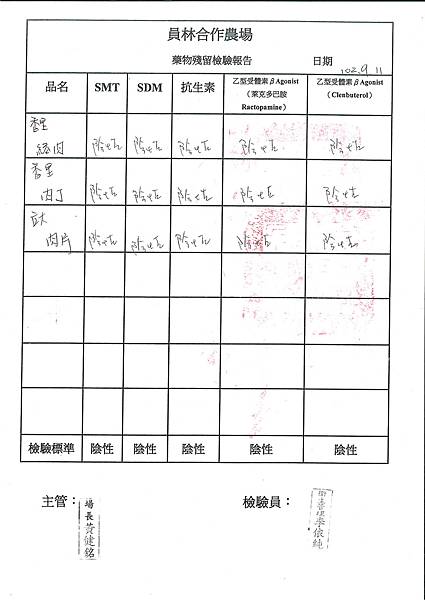 員林合作農場
藥物殘留檢驗報告 日期 102.9.11
品名 SMT SDM 抗生素 乙型受體素βAgonist（萊克多巴胺 Ractopamine） 乙型受體素βAgonist (Clenbuterol)
香里
絞肉 陰性 陰性 陰性 陰性 陰性
香里
肉丁 陰性 陰性 陰性 陰性 陰性
肉片 陰性 陰性 陰性 陰性 陰性
檢驗標準 陰性 陰性 陰性 陰性 陰性
主管： 場長黃健銘 檢驗員： 李依純